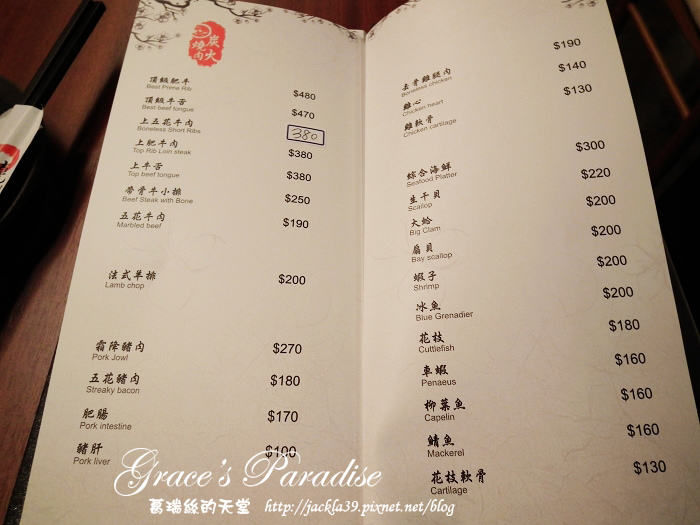 炭火
燒肉
頂級肥牛 $480
Best Prime Rib
頂級牛舌 $470
Best beef tongue
上五花牛肉 380
Boneless Short Ribs
上肥牛肉 $380
Top Rib Loin steak
上牛舌 $380
Top beef tongue
帶骨牛小排 $250
Beef Steak with Bone
五花牛肉 $190
Marbled beef
法式羊排 $200
Lamb chop
霜降豬肉 $270
Pork Jowl
五花豬肉 $180
Streaky bacon
肥腸 $170
Pork intestine
豬肝 $100
Pork liver
去骨雞腿肉 $190
Boneless chicken
雞心 $140
Chicken heart
雞軟骨 $130
Chicken cartilage
綜合海鮮 $300
Seafood Platter
生干貝 $220
Scallop
大蛤 $200
Big Clam
扇貝 $200
Bay scallop
蝦子 $200
Shrimp
冰魚 $200
Blue Grenadier
花枝 $180
Cuttlefish
車蝦 $160
Penaeus
柳葉魚 $160
Capelin
鯖魚 $160
Mackerel
花枝軟骨 $130
Cartilage
Grace's Paradise
葛瑞絲的天堂 http://jackla39.pixnet.net/blog